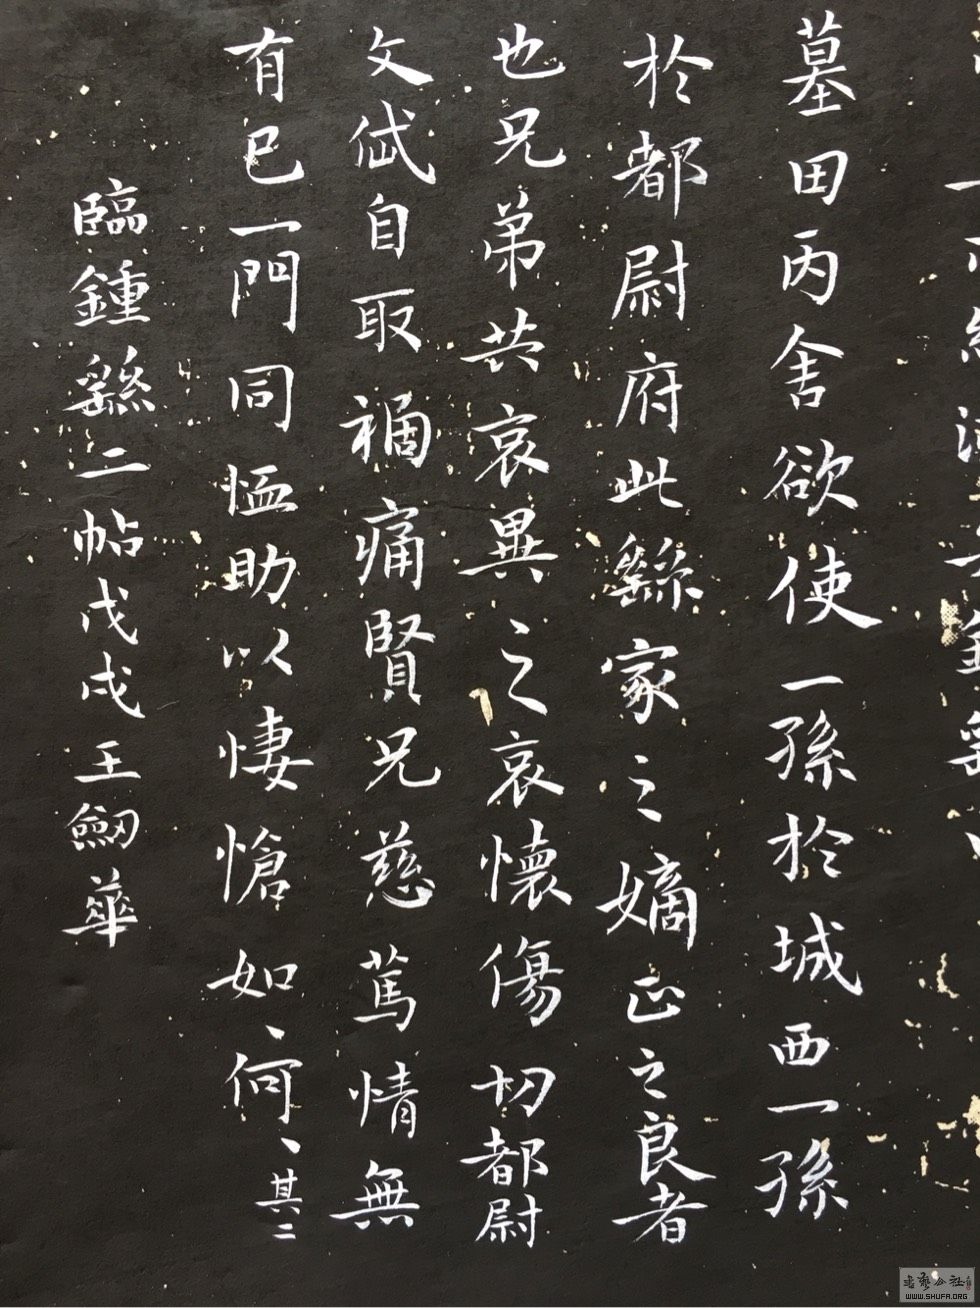 墓田丙舍欲使一孫於城西一孫
於都尉府此繇家之嫡正之良者
也兄弟共哀異之哀懷傷切都尉
文岱自取禍痛賢兄慈篤情無
有已一門同恤助以悽愴如、何、其二
臨鍾繇二帖戊戌王劒華
書藝公社
WWW.SHUFA.ORG